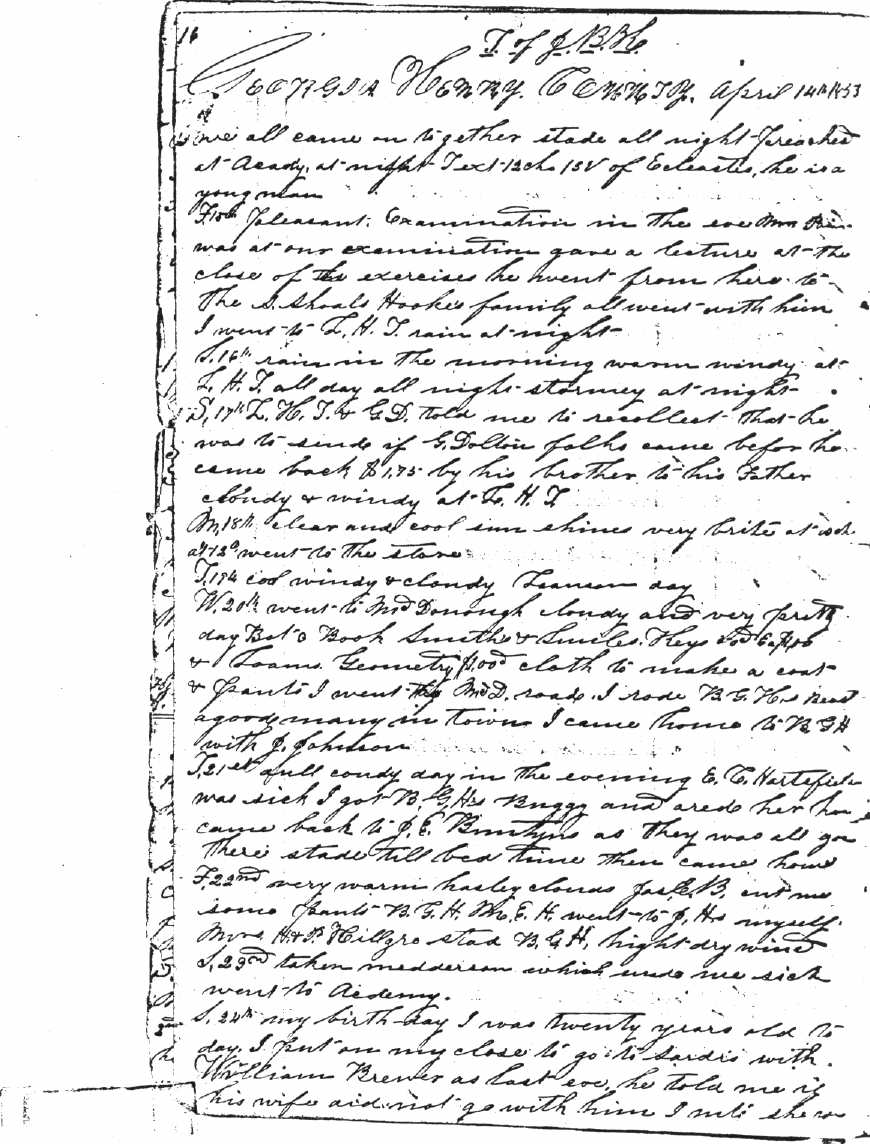 16
J. of J. B. H.
GEORGIA HENRY. COUNTY. April 14th 1853
we all came on together stade all night Preached
at Acady. at night Text 12 ch. 13 V of Ecleastes, he is a
yong man
F. 15th Pleasant. Examination in the eve
was at our examination gave a lecture at the
close of the exercises he went from here to
the S. Shoals Hookes family all went with him
I went to L. H. T. rain at night
S. 16th rain in the morning warm windy at
L. H. T. all day all night stormey at night
S, 17th L. H. T. & G. D. told me to recollect that he
was to sende if G. Dolton folks came befor he
came back $1,75 by his brother to his Father
cloudy & windy at L. H. T.
M, 18th clear and cool sun shines very brite at
went to the store
T. 19th cool windy & cloudy day
W. 20th went to McDonough cloudy and very pretty
day Bot a Book Smith &
& Loams Geometry cloth to make a coat
& pants I went the McD. road. I rode B. G. H.s Beast
a good many in town I came home to B G H
with J. Johnson
T. 21st full coudy day in the evening E. C. Hartsfield
was sick I got B. G. H.s Buggy and
came back to J. E. as they was all gon
there stade till bed time then came home
F. 22nd very warm hasley clouds Jas. E. B. cut me
some pants B. G. H. M. E. H. went to J. Hs myself
Mrs. H. & P. Hillgro stad B. G. H, night dry wind
S, 23rd taken medderson which made me sick
went to Acdemy.
S. 24th my birth day I was twenty years old to
day. I put on my close to go to Sardis with.
William Brewer as last eve. he told me if
his wife did not go with him I